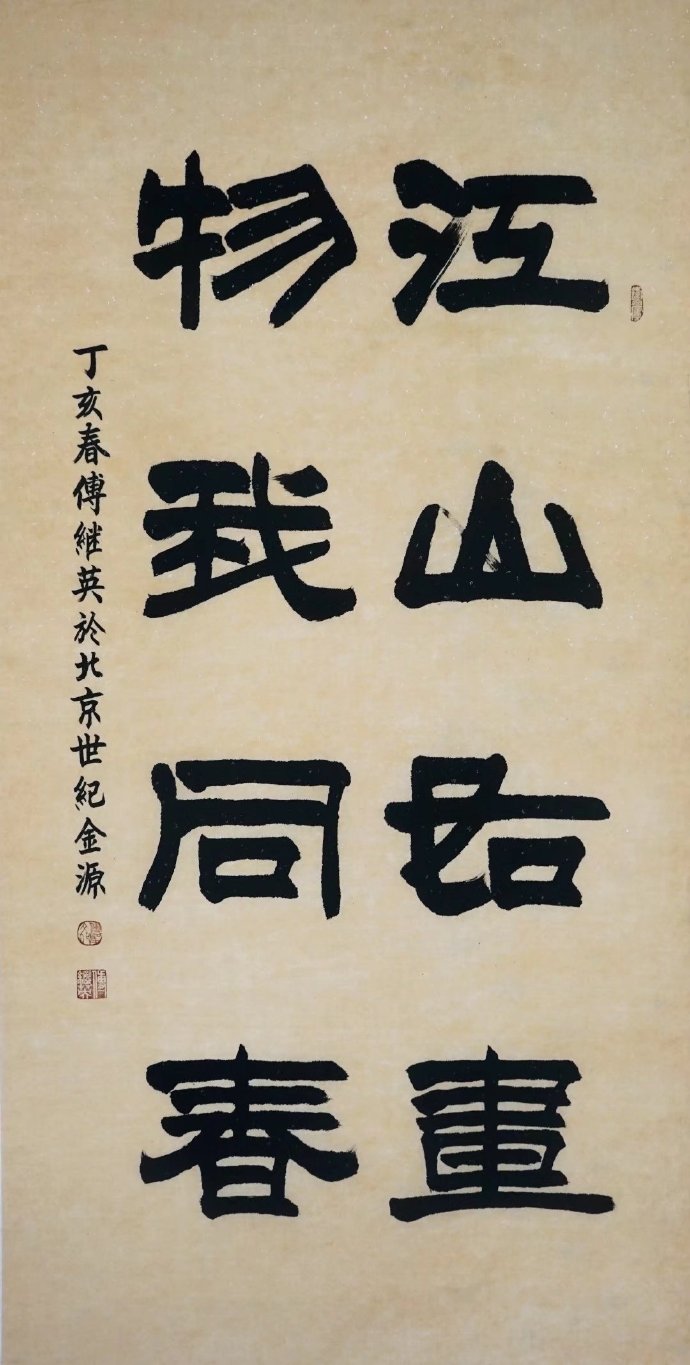 江山如畫
物我同春
丁亥春傅継英於北京世紀金源